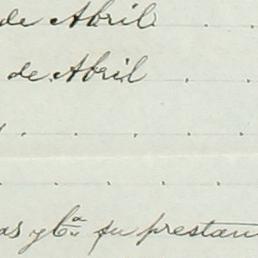 de Abril . . .
de Abril . .
. . . . .
. . . . .
as y su prestan